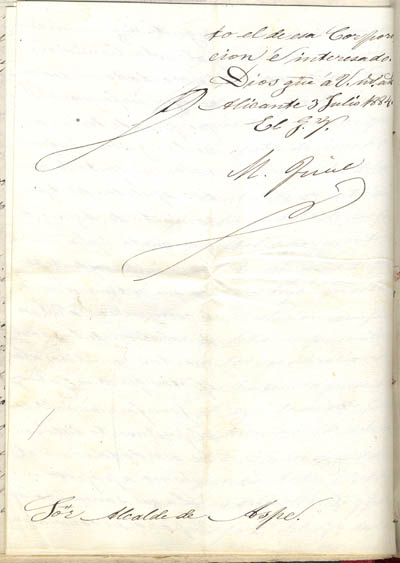 to el de esa Corpora
cion é interesado.
Dios gue á V. m. as
Alicante 3 Julio 1884.
El G. 
M.
Sor Alcalde de Aspe.